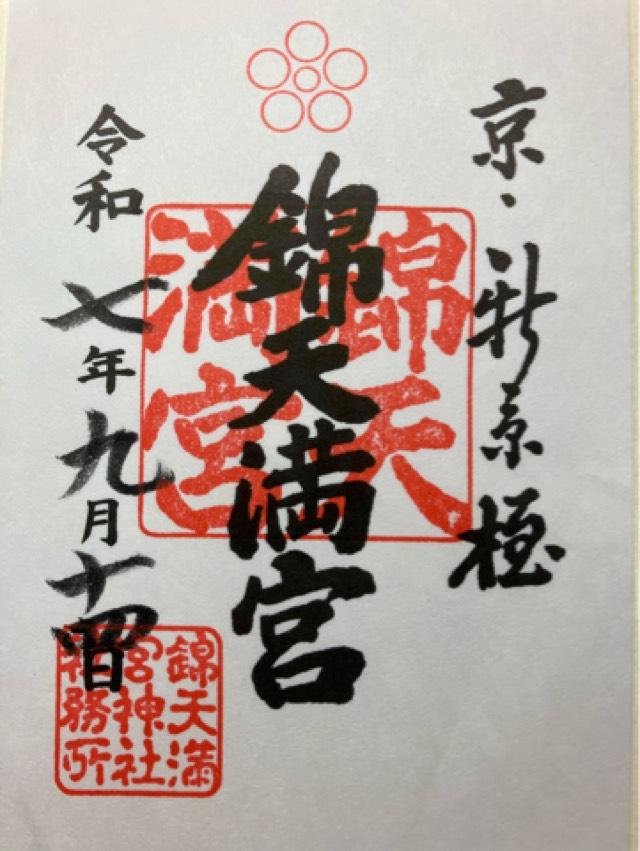 京・新京極
錦天満宮
錦天
満宮
令和七年九月十四日
錦天満
宮神社
社務所